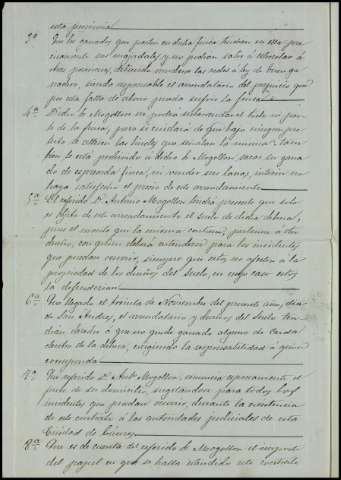 esta provincia
3ª Que los ganados que pasten en dicha finca tendrán en ella pre-
cisamente sus majadales y no podrán salir á
otras posesiones, debiendo mudarse las redes á ley de buen ga-
nadero, siendo responsable el arrendatario del perjuicio que
por esta falta de abono pueda sufrir la finca
4ª Dicho Mogollon no podrá subarrendar el todo ni par-
te de la finca, pero si cuidará de que bajo ningun pre-
texto se alteren las lindes que señalan la misma; tam-
bien le está prohibido á dicho Mogollon sacar su gana-
do de espresada finca, ni vender sus lanas, interin no
haya satisfecho el precio de este arrendamiento
5ª El referido D. Antonio Mogollon tendrá presente que solo
es objeto de este arrendamiento el suelo de dicha dehesa,
pues el monte que la misma contiene, pertenece á otro
dueño, con quien deberá entenderse para los incidentes
que puedan ocurrir, siempre que estos no afecten á la
propiedad de los dueños del suelo, en cuyo caso estos
la defenderian
6ª Que llegado el treinta de Noviembre del presente año, dia
de San Andres, el arrendatario y dueños del suelo ten-
drán derecho á que no quede ganado alguno de Cerda
dentro de la dehesa, exigiendo la responsabilidad á quien
corresponda
7ª Que referido D. Antº Mogollon, renuncia espresamente el
fuero de su domicilio, sugetandose para todos los
incidentes que puedan ocurrir, durante la existencia
de este contrato á las autoridades judiciales de esta
Ciudad de Cáceres
8ª Que es de cuenta del referido de Mogollon el importe
del papel en que se halla estendido este contrato